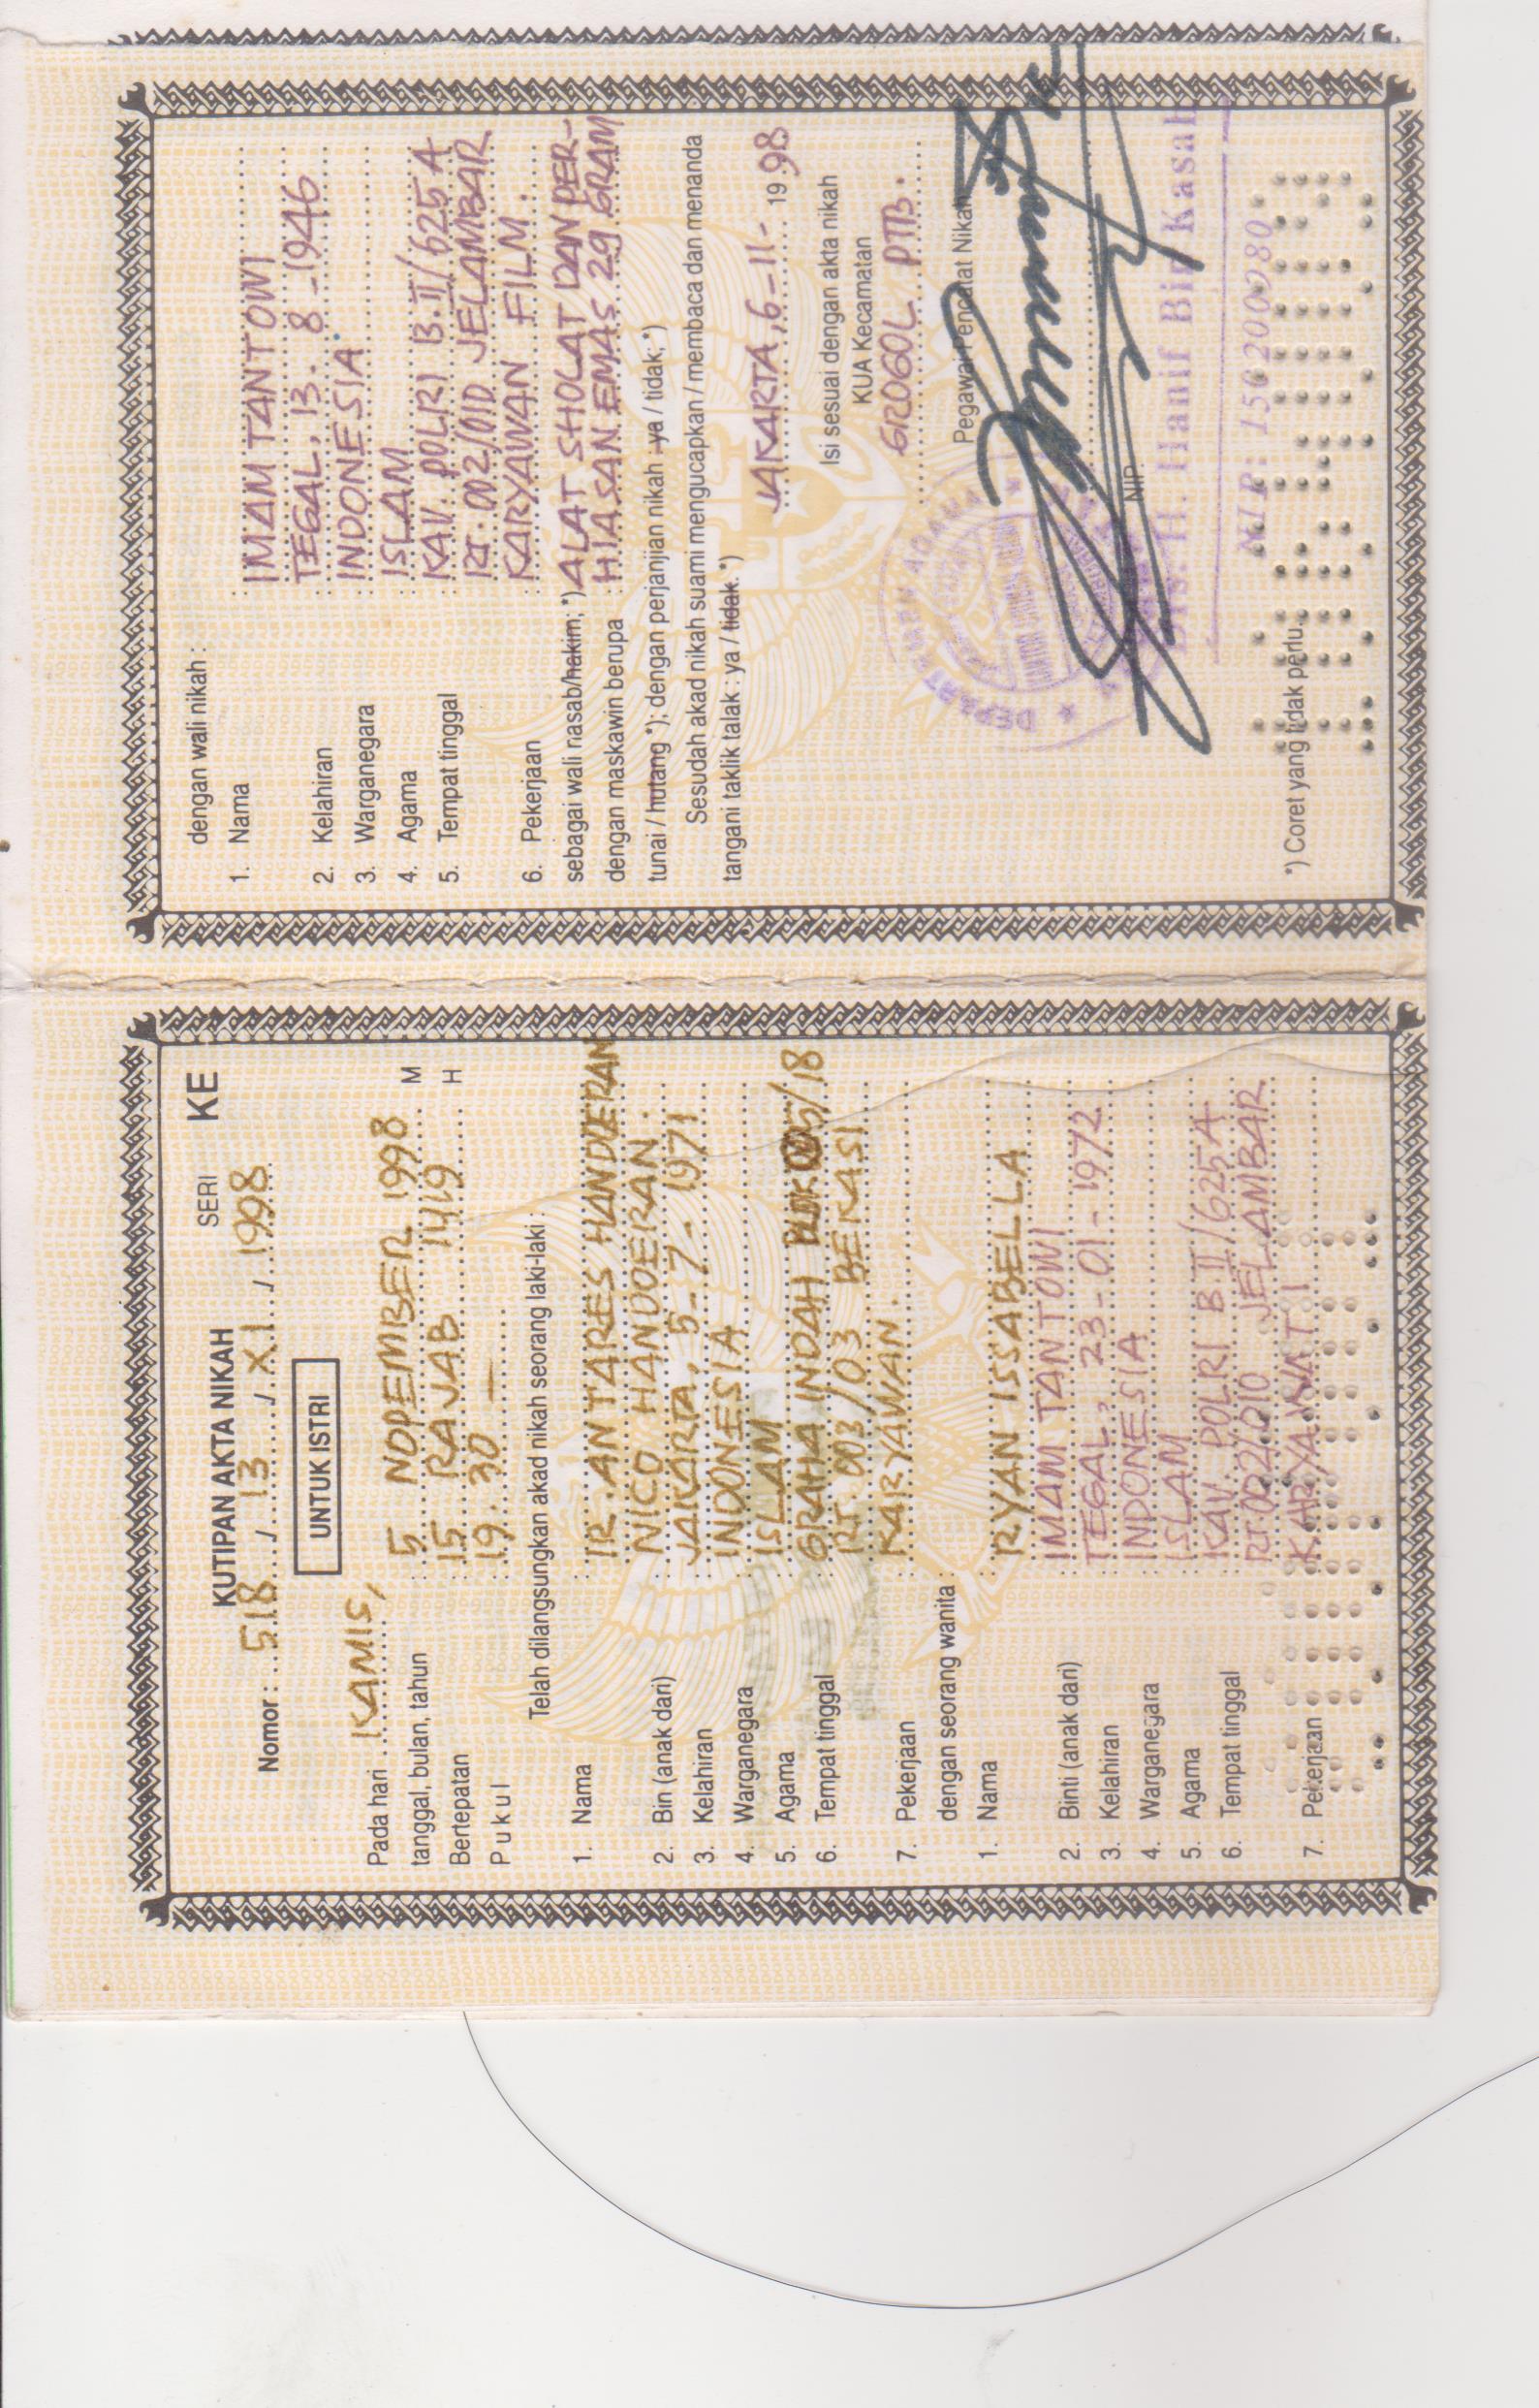 KUTIPAN AKTA NIKAH
SERI KE
Nomor : 518 / 13 / XI / 1998
UNTUK ISTRI
Pada hari : KAMIS,
tanggal, bulan, tahun : 5 NOPEMBER 1998 M
Bertepatan : 15 RAJAB 1419 H
Pukul : 19.30 —
Telah dilangsungkan akad nikah seorang laki-laki :
1. Nama : IR. ANTARES HANDOERAN
2. Bin (anak dari) : NICO HANDOERAN.
3. Kelahiran : JAKARTA, 5-7-1971
4. Warganegara : INDONESIA
5. Agama : ISLAM
6. Tempat tinggal : GRAHA INDAH BLOK /18
RT. 003/03 BEKASI
7. Pekerjaan : KARYAWAN.
dengan seorang wanita :
1. Nama : RYAN ISSABELLA
2. Binti (anak dari) : IMAM TANTOWI
3. Kelahiran : TEGAL, 23-01-1972
4. Warganegara : INDONESIA
5. Agama : ISLAM
6. Tempat tinggal : KAV. POLRI B II/625A
RT 002/010 JELAMBAR
7. Pekerjaan : KARYAWATI
dengan wali nikah :
1. Nama : IMAM TANTOWI
2. Kelahiran : TEGAL, 13. 8-1946
3. Warganegara : INDONESIA
4. Agama : ISLAM
5. Tempat tinggal : KAV. POLRI B.II/625 A
RT. 002/010 JELAMBAR
6. Pekerjaan : KARYAWAN FILM.
sebagai wali nasab/hakim; *) ALAT SHOLAT DAN PER-
dengan maskawin berupa : HIASAN EMAS 29 GRAM
tunai / hutang *); dengan perjanjian nikah ya / tidak; *)
Sesudah akad nikah suami mengucapkan / membaca dan menanda
tangani taklik talak : ya / tidak. *)
JAKARTA, 6-11- 1998
Isi sesuai dengan akta nikah
KUA Kecamatan
GROGOL PTB.
Pegawai Pencatat Nikah
DEPARTEMEN AGAMA
Drs. H. Hanif Bin Kasab
NIP.
NIP: 150200980
*) Coret yang tidak perlu.